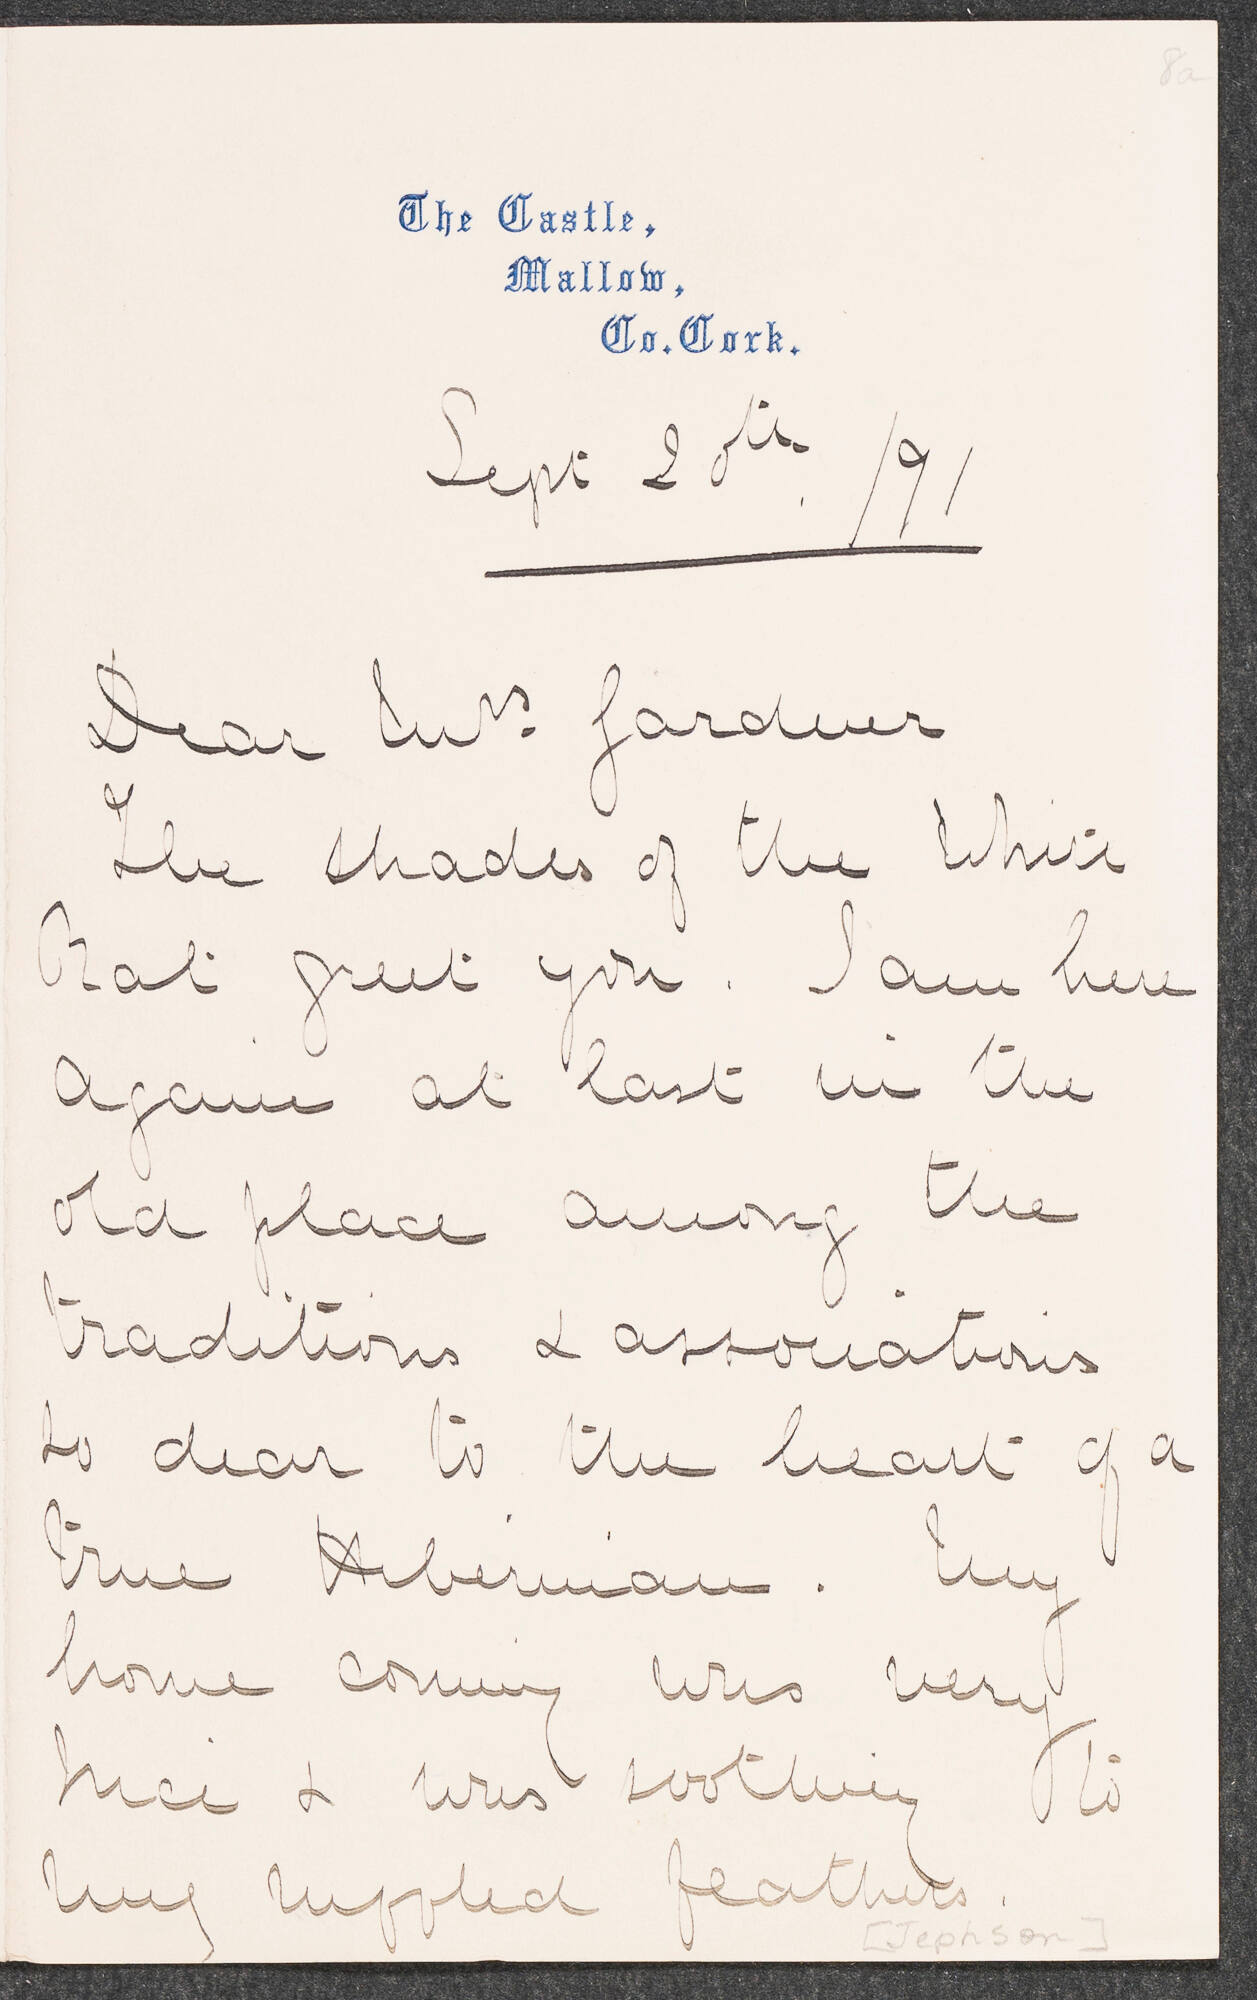 8a
The Castle,
Mallow,
Co. Cork.
Sept 20th. /91
Dear Mrs. Gardner
The shades of the White
Rat greet you. I am here
again at last in the
old place among the
traditions & associations
so dear to the heart of a
true Hibernian. My
home coming was very
nice & was soothing to
my ruffled feathers.
[Jephson]